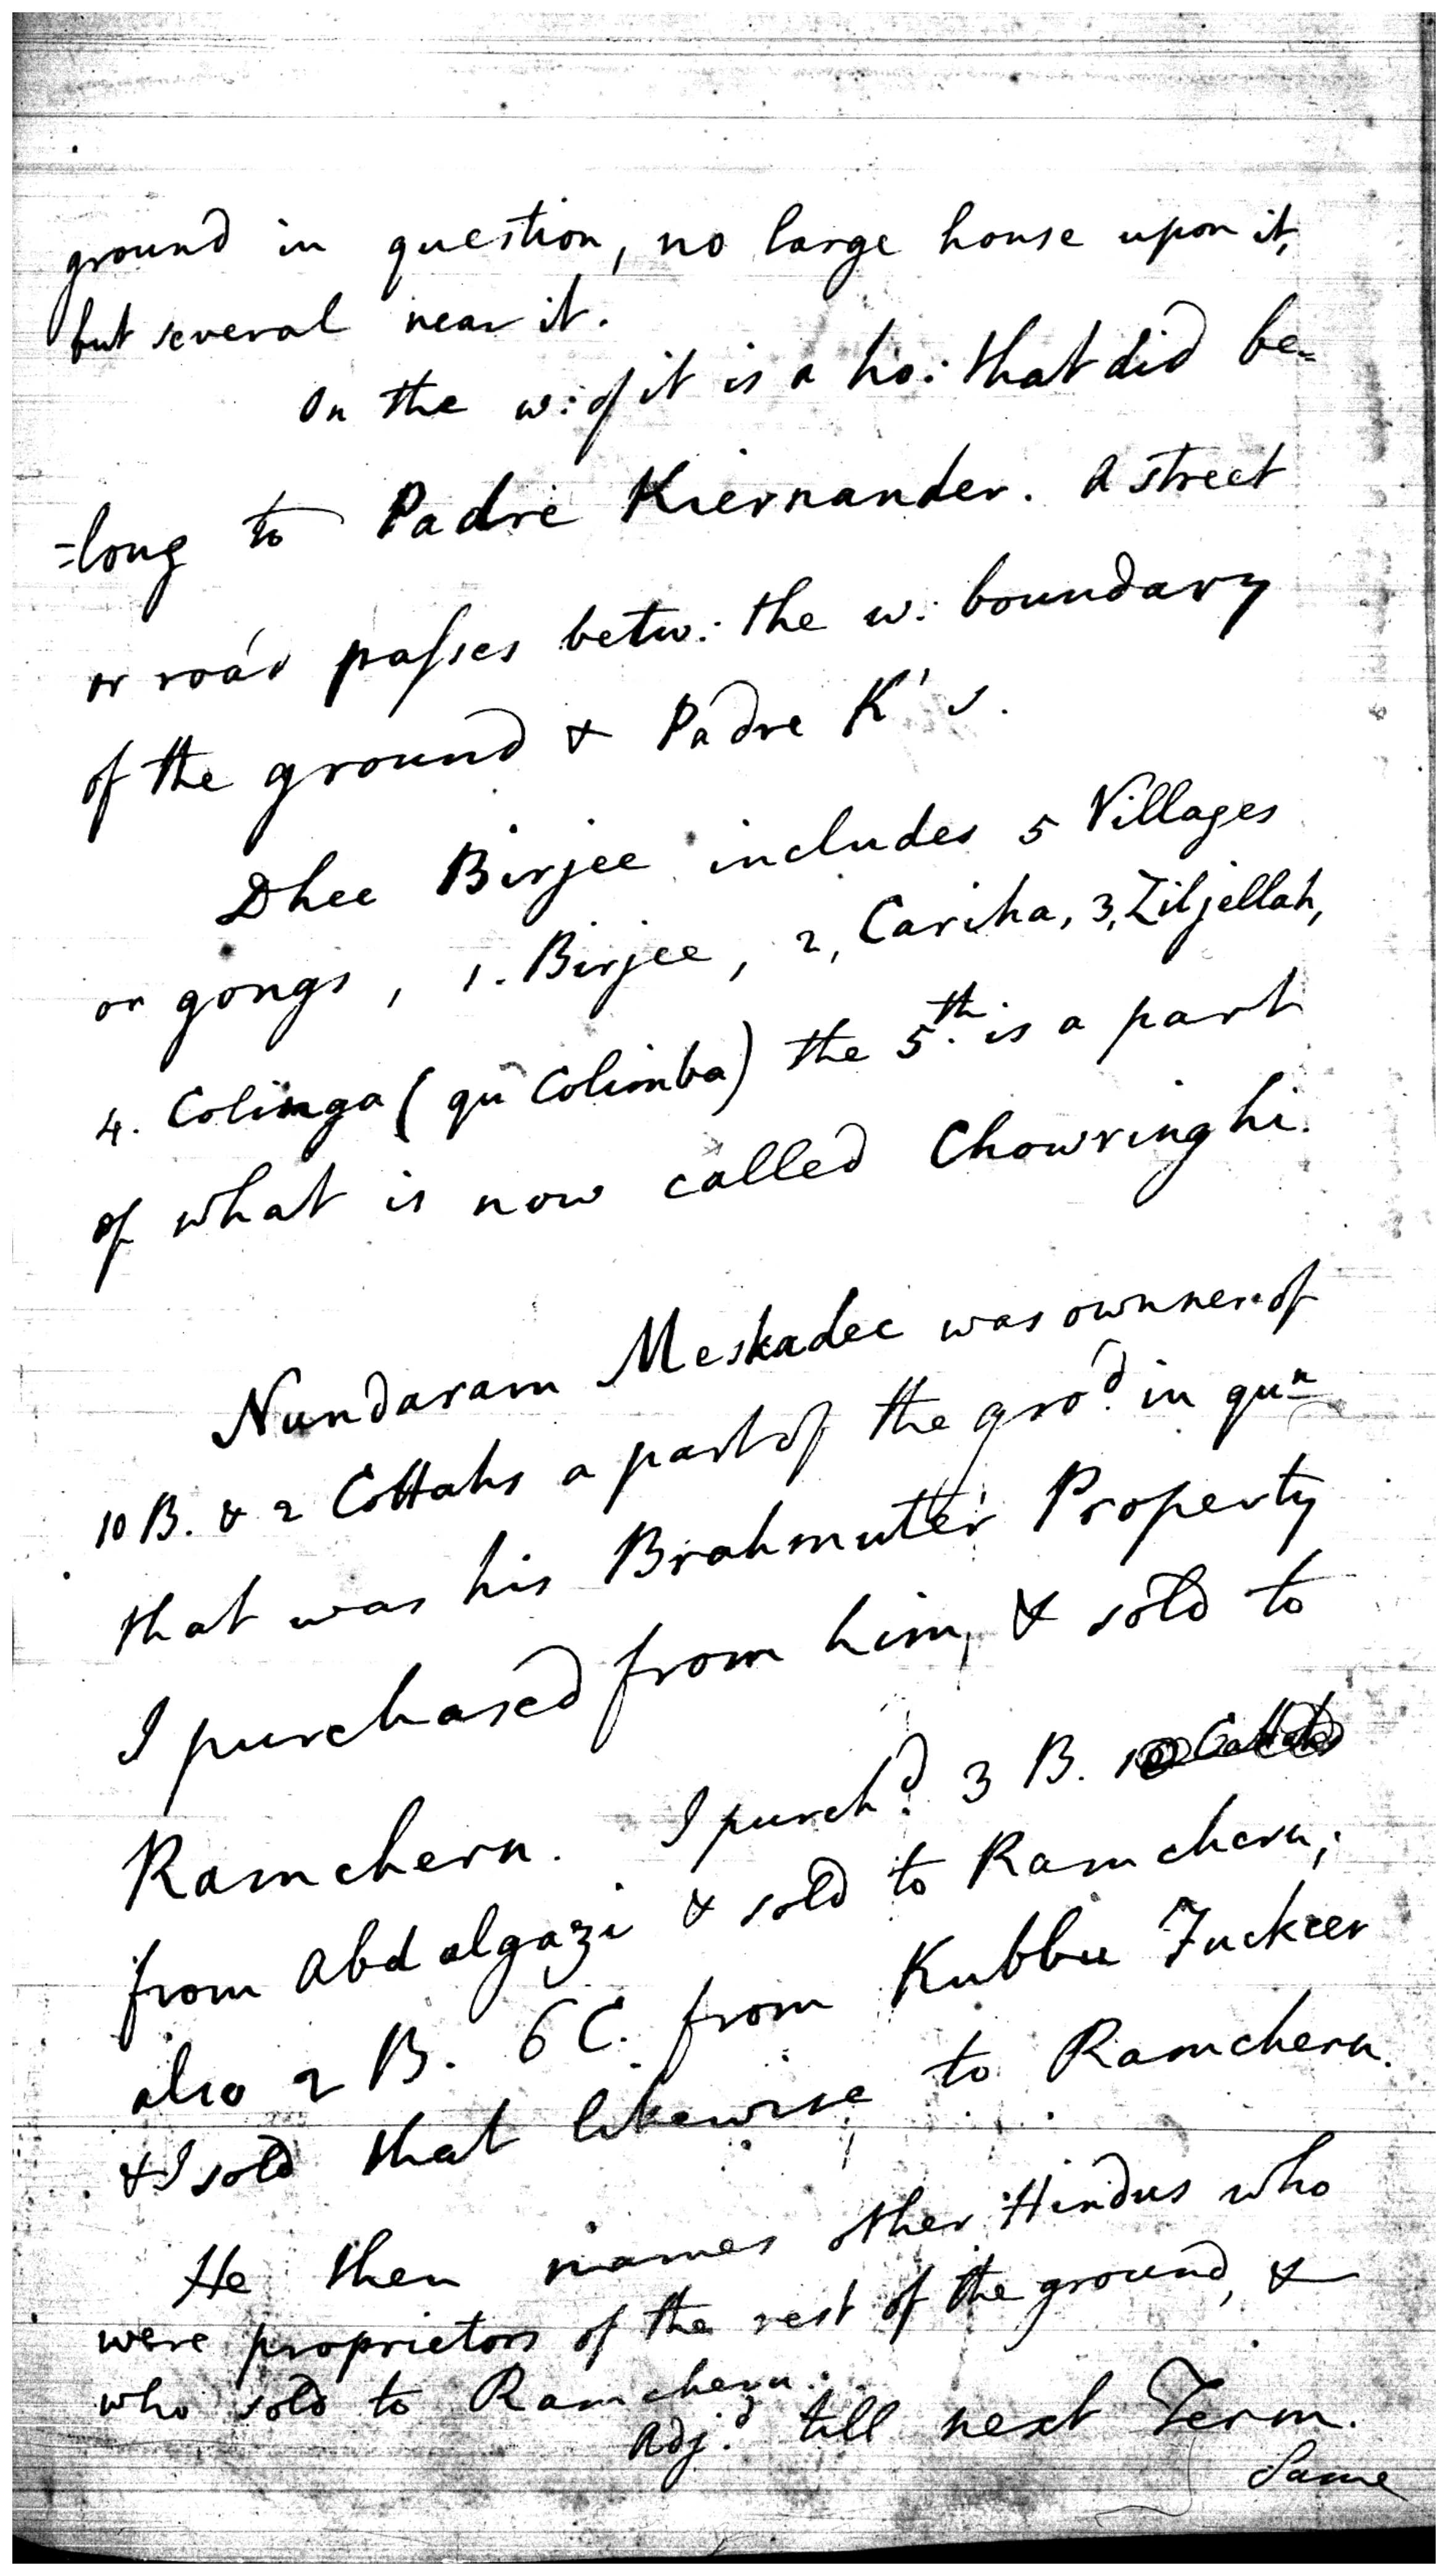 ground in question, no large house upon it,
but several near it.
On the w: of it is a ho: that did be=
=long to Padre Kiernander. A street
or road passes betw: the w: boundary
of the ground & Padre K's.
Dhee Birjee includes 5 Villages
or gongs, 1. Birjee, 2, Cariha, 3, Ziljellah,
4. Colinga (qu Colimba) the 5th. is a part
of what is now called Chowringhi.
Nundaram Meskadee was owner of
10 B. & 2 Cottahs a part of the gro.d in qun
that was his Brahmuter Property
I purchased from him, & sold to
Ramchern. I purch.d 3 B.
from Abdalgazi & sold to Ramchern;
also 2 B. 6 C. from Kubbu Fuckeer
& I sold that likewise to Ramchern.
He then names other Hindus who
were proprietors of the rest of the ground, &
who sold to Ramchern.
Adj.d till next Term.
Same